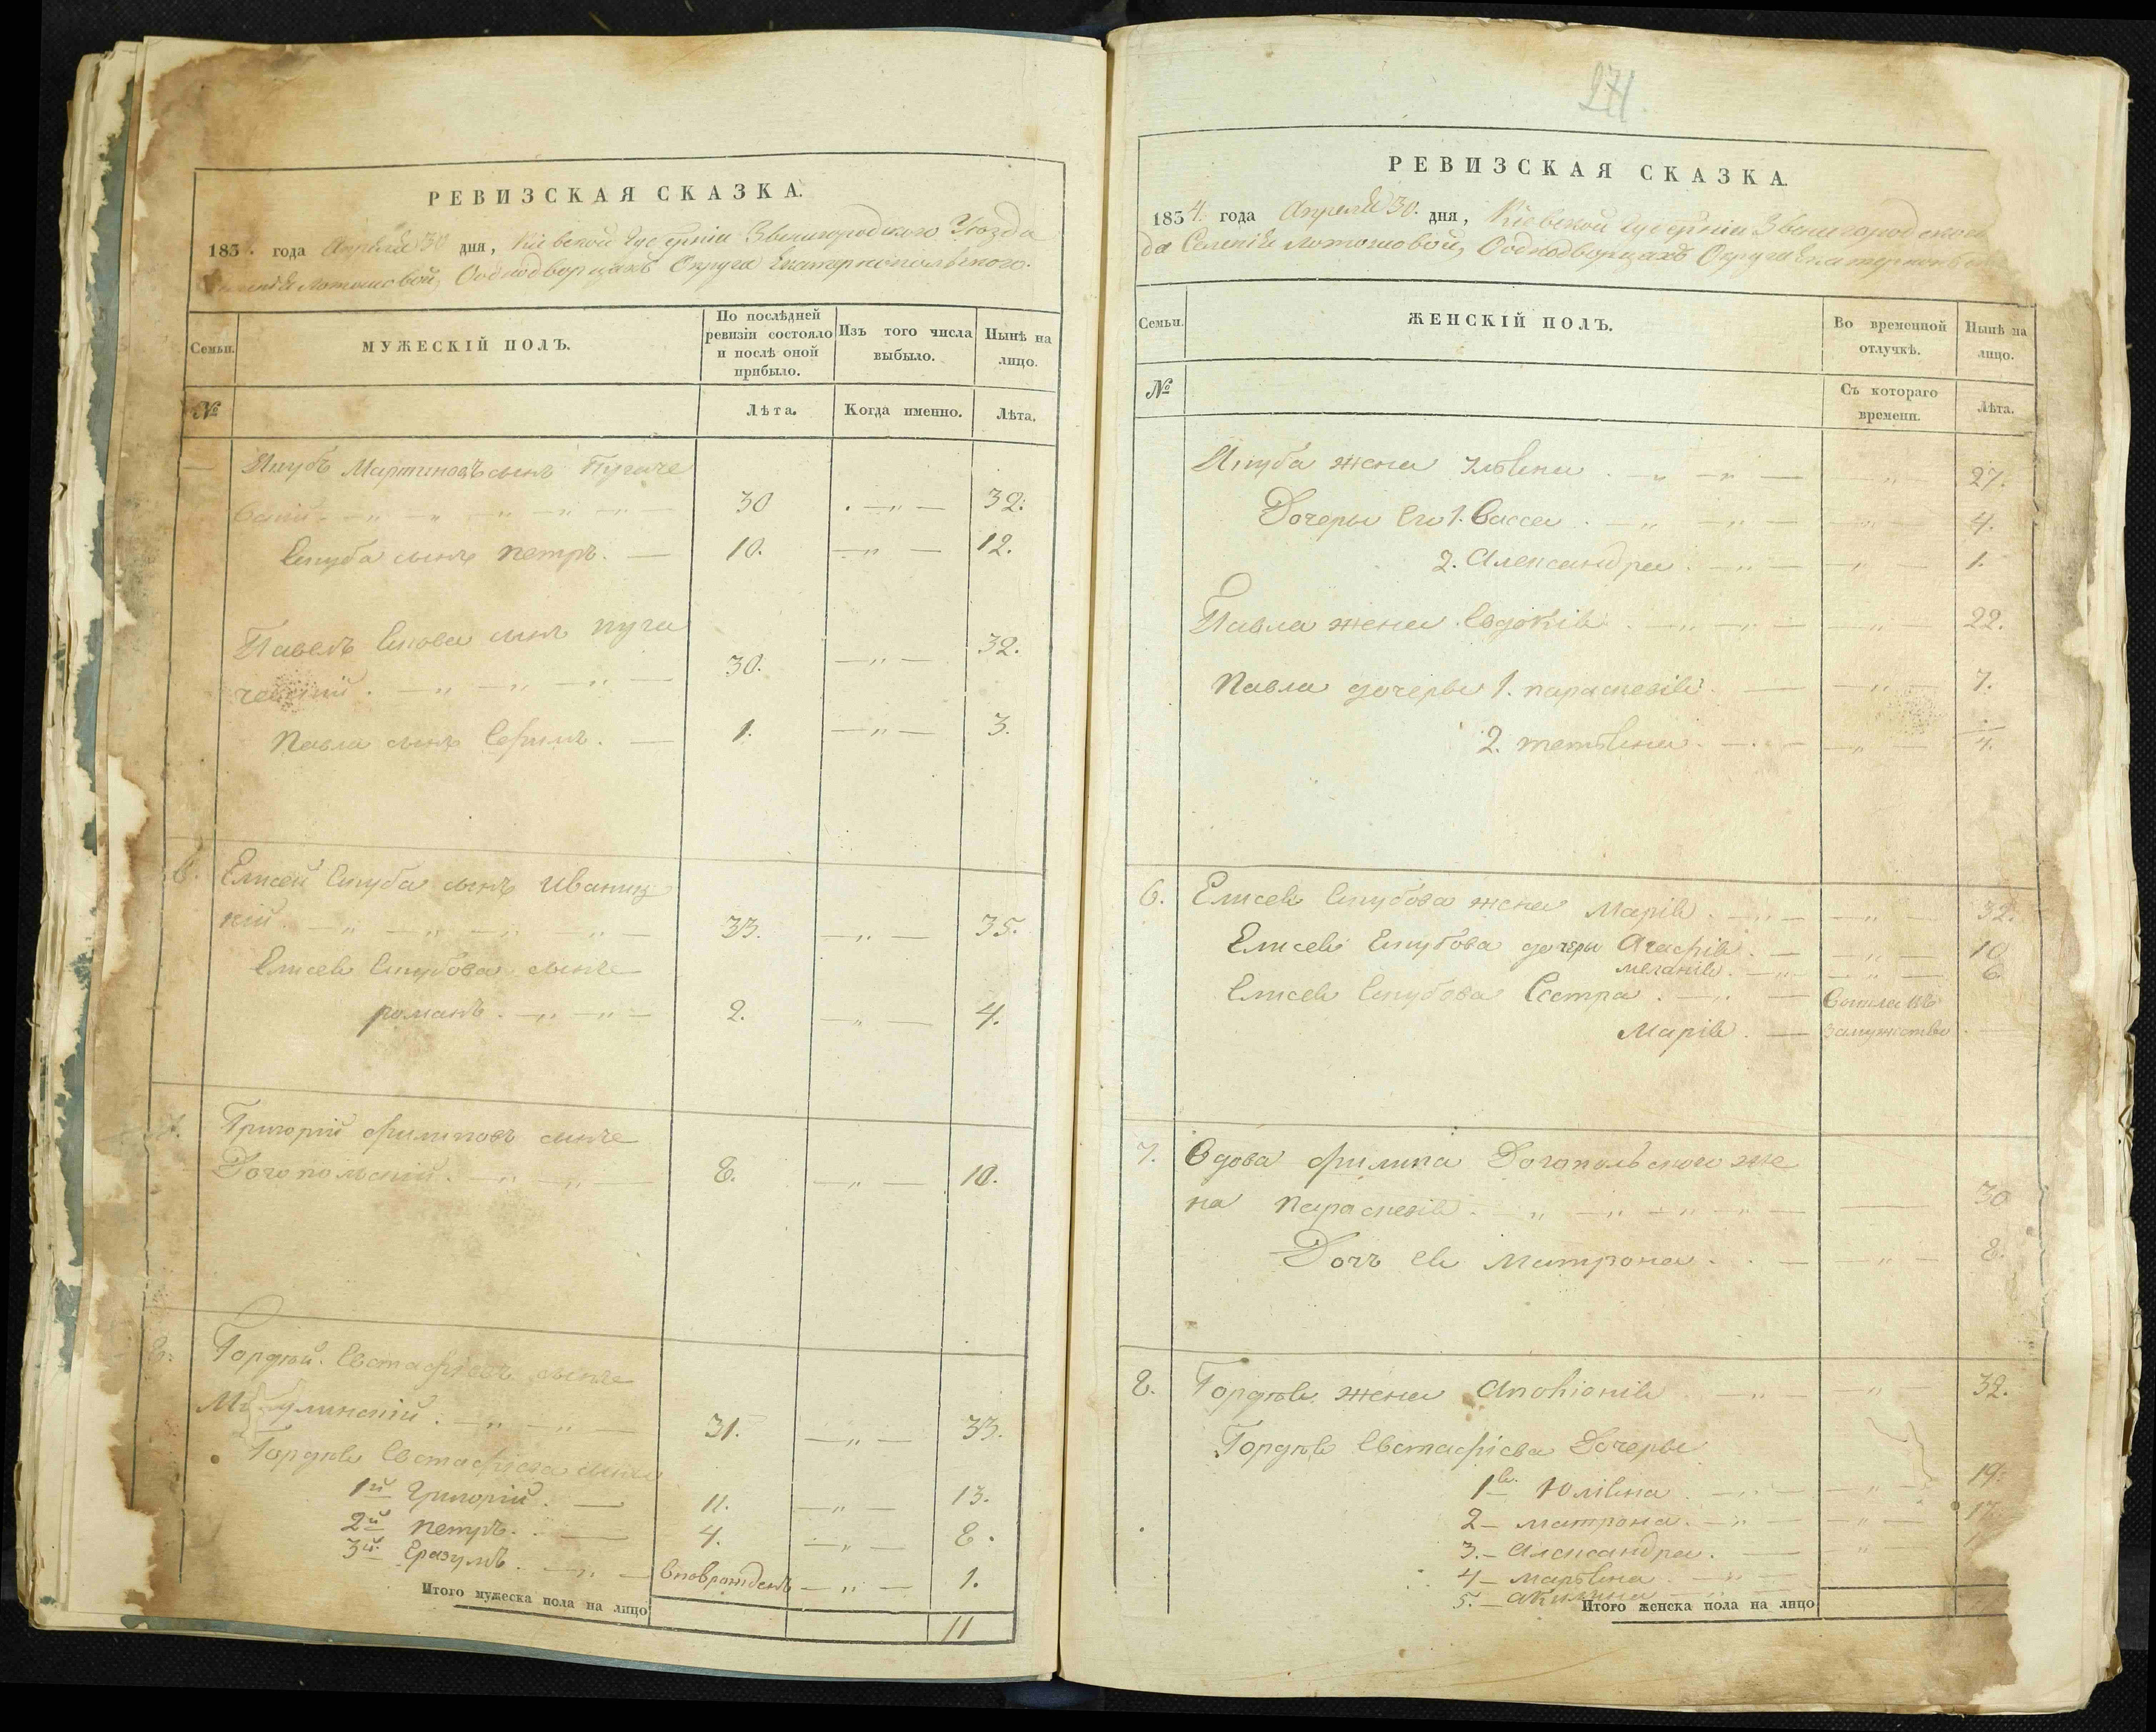 РЕВИЗСКАЯ СКАЗКА.
183 года Апреля 30 дня, Кіевской Губерніи Звенигородского Уезда
Лотошовой, Однодворцахъ Округа Екатеринопольского.
Семьи.
МУЖЕСКІЙ ПОЛЪ.
По послѣдней ревизіи состояло и послѣ оной прибыло.
Изъ того числа выбыло.
Нынѣ на лицо.
№
Лѣта.
Когда именно.
Лѣта.
Якубъ Мартиновъ сынъ Пугаче
вскій 30 32.
Якуба сынъ петръ. 10. 12.
Павелъ Якова сынъ пуга
човскій. 30. 32.
Павла сынъ Ефимъ. 1. 3.
6. Елисей Якуба сынъ Иваниц
кій 33. 35.
Елисея Якубова сынъ
романъ. 2. 4.
7. Григорій филиповъ сынъ
Догопольскій. 8. 10.
8. Гордей Евстафіевъ сынъ
31. 33.
Гордея Евстафіева сыны
1й Григорій. 11. 13.
2й петръ. 4. 8.
3й Еразумъ. вновьрожденъ 1.
Итого мужеска пола на лицо 11
271.
РЕВИЗСКАЯ СКАЗКА.
1834. года Апреля 30. дня, Кіевской Губерніи Звенигородского
да Селенія Лотошовой, Однодворцахъ Округа
Семьи.
ЖЕНСКІЙ ПОЛЪ.
Во временной отлучкѣ.
Нынѣ на лицо.
№
Съ котораго времени.
Лѣта.
Якуба жена Ульяна 27.
Дочеры Его 1. Васса 4.
2. Александра 1.
Павла жена Евдокія 22.
Павла дочеры 1. параскевія 7.
2. тетяна. 4.
6. Елисея Якубова жена Марія. 32.
Елисея Якубова дочеры Агафія. 10
меланія. 6
Елисея Якубова Сестра. Вышла въ
Марія. замужство
7. Вдова филипа Догопольского же
на Параскевія. 30
Дочъ ея Матрона. 8.
8. Гордея жена Аполонія 32.
Гордея Евстафіева Дочеры
1я Юліяна 19.
2 – матрона. 17.
3. – Александра.
4 – маряна.
5. – акилина
Итого женска пола на лицо